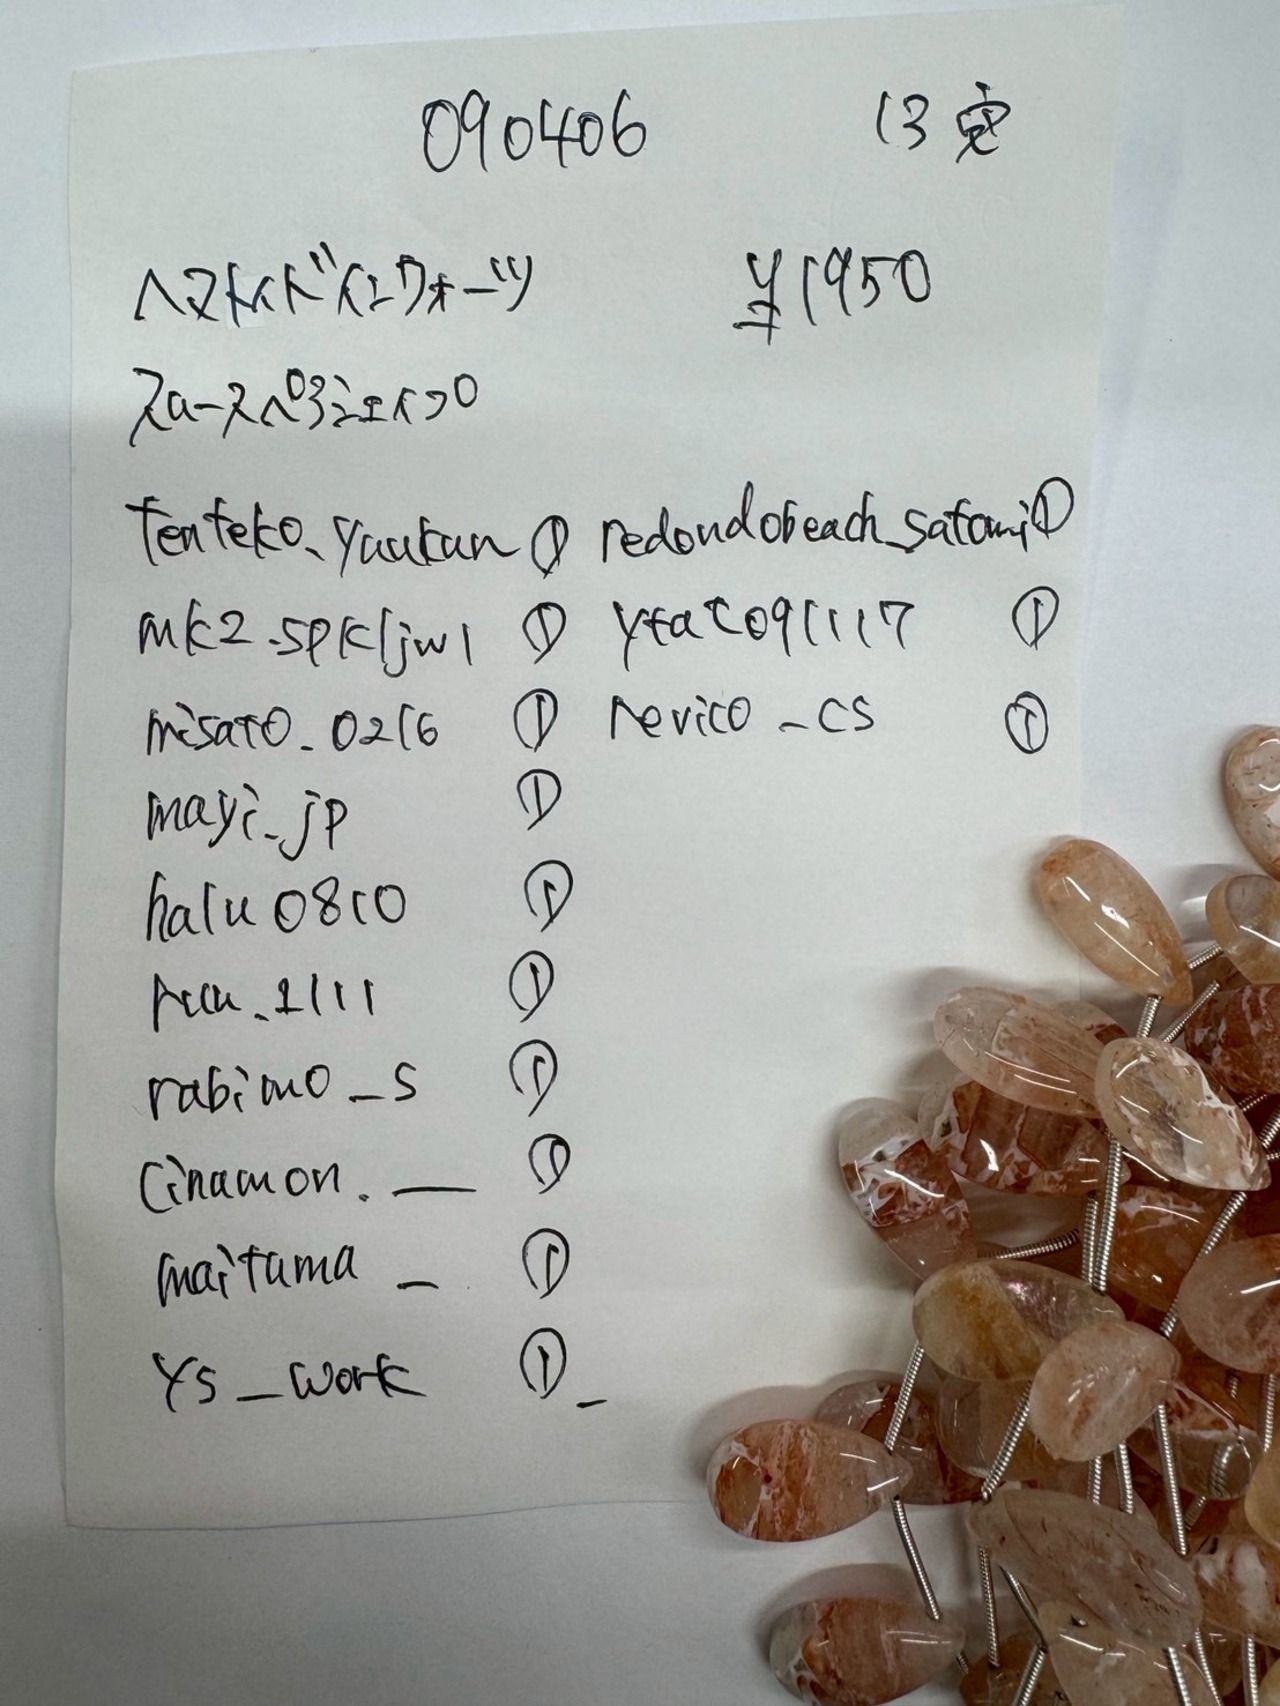 090406 13完
ヘマトイドインクォーツ ¥1950
スムースペアシェイプ
tenteko_yuukun ① redondobeach_satomi ①
mk2.spkljw1 ① ytat091117 ①
misato_0216 ① revico_cs ①
mayi_jp ①
halu0810 ①
ruu_1111 ①
rabimo_s ①
cinamon.__ ①
maitama_ ①
ys_work ①_